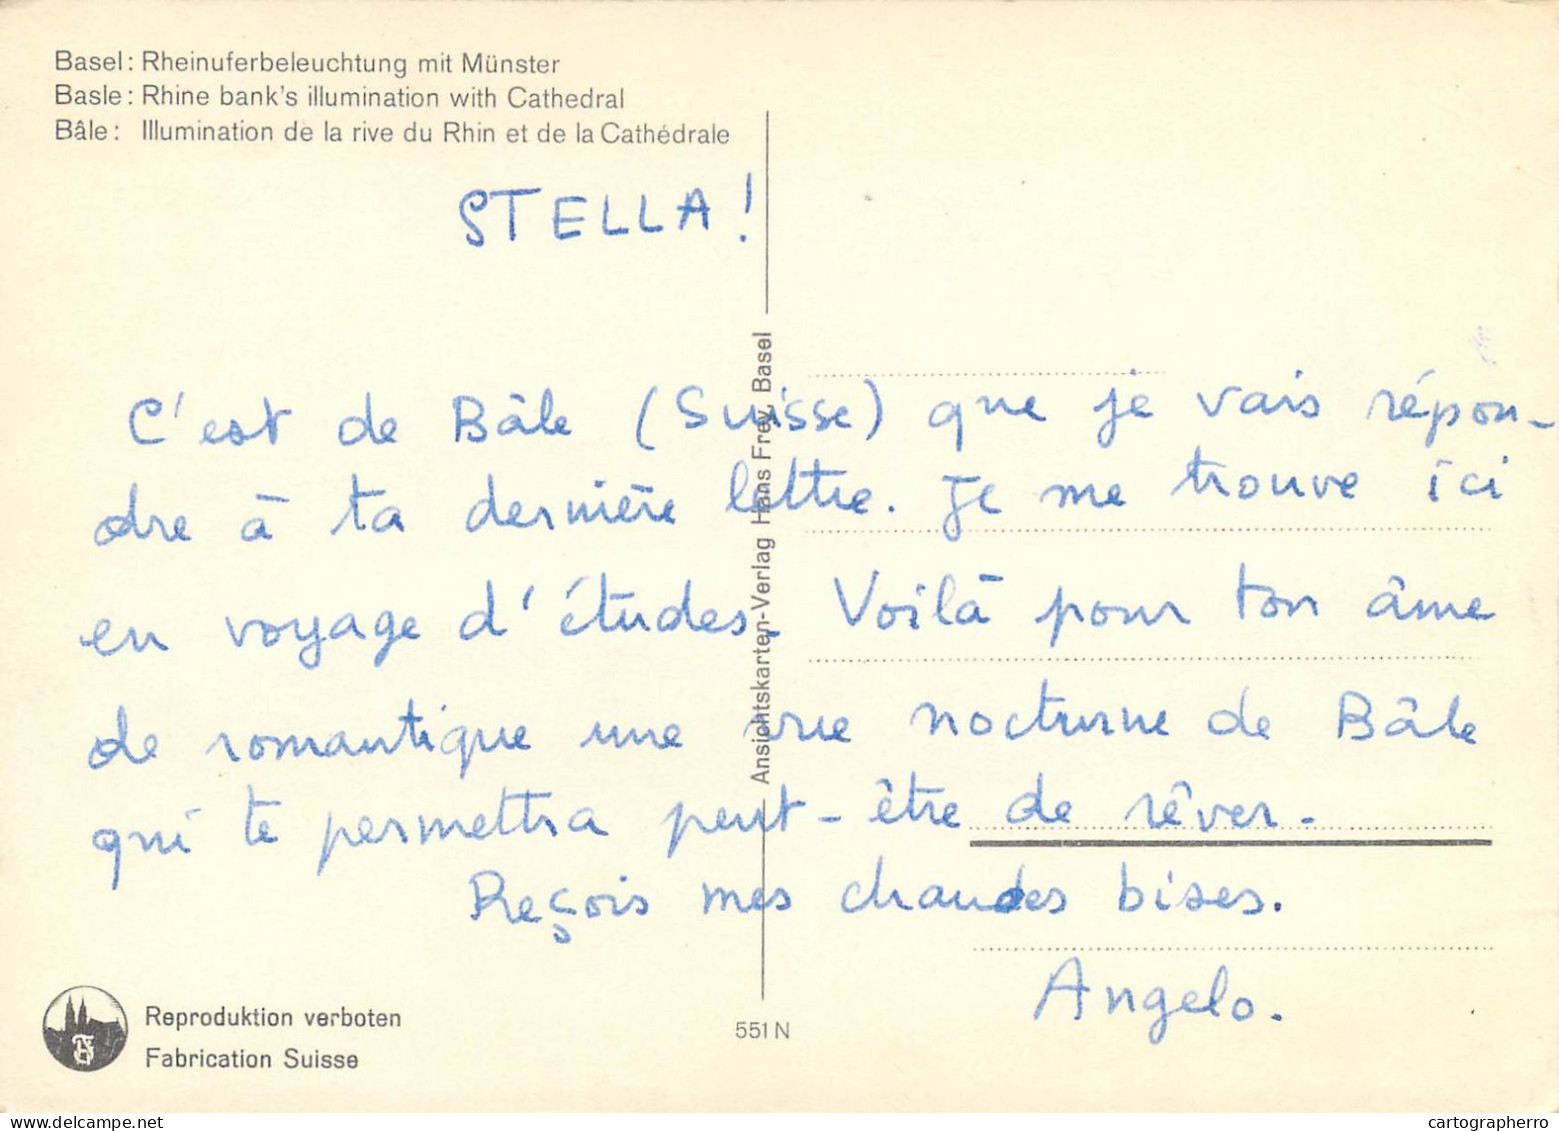 Basel: Rheinuferbeleuchtung mit Münster
Basle: Rhine bank's illumination with Cathedral
Bâle: Illumination de la rive du Rhin et de la Cathédrale
STELLA!
C'est de Bâle (Suisse) que je vais répon-
dre à ta dernière lettre. Je me trouve ici
en voyage d'études. Voilà pour ton âme
de romantique une vue nocturne de Bâle
qui te permettra peut-être de rêver.
Reçois mes chaudes bises.
Angelo.
Ansichtskarten-Verlag Hans Frey, Basel
Reproduktion verboten
Fabrication Suisse
551 N
delcampe.net
cartographerro